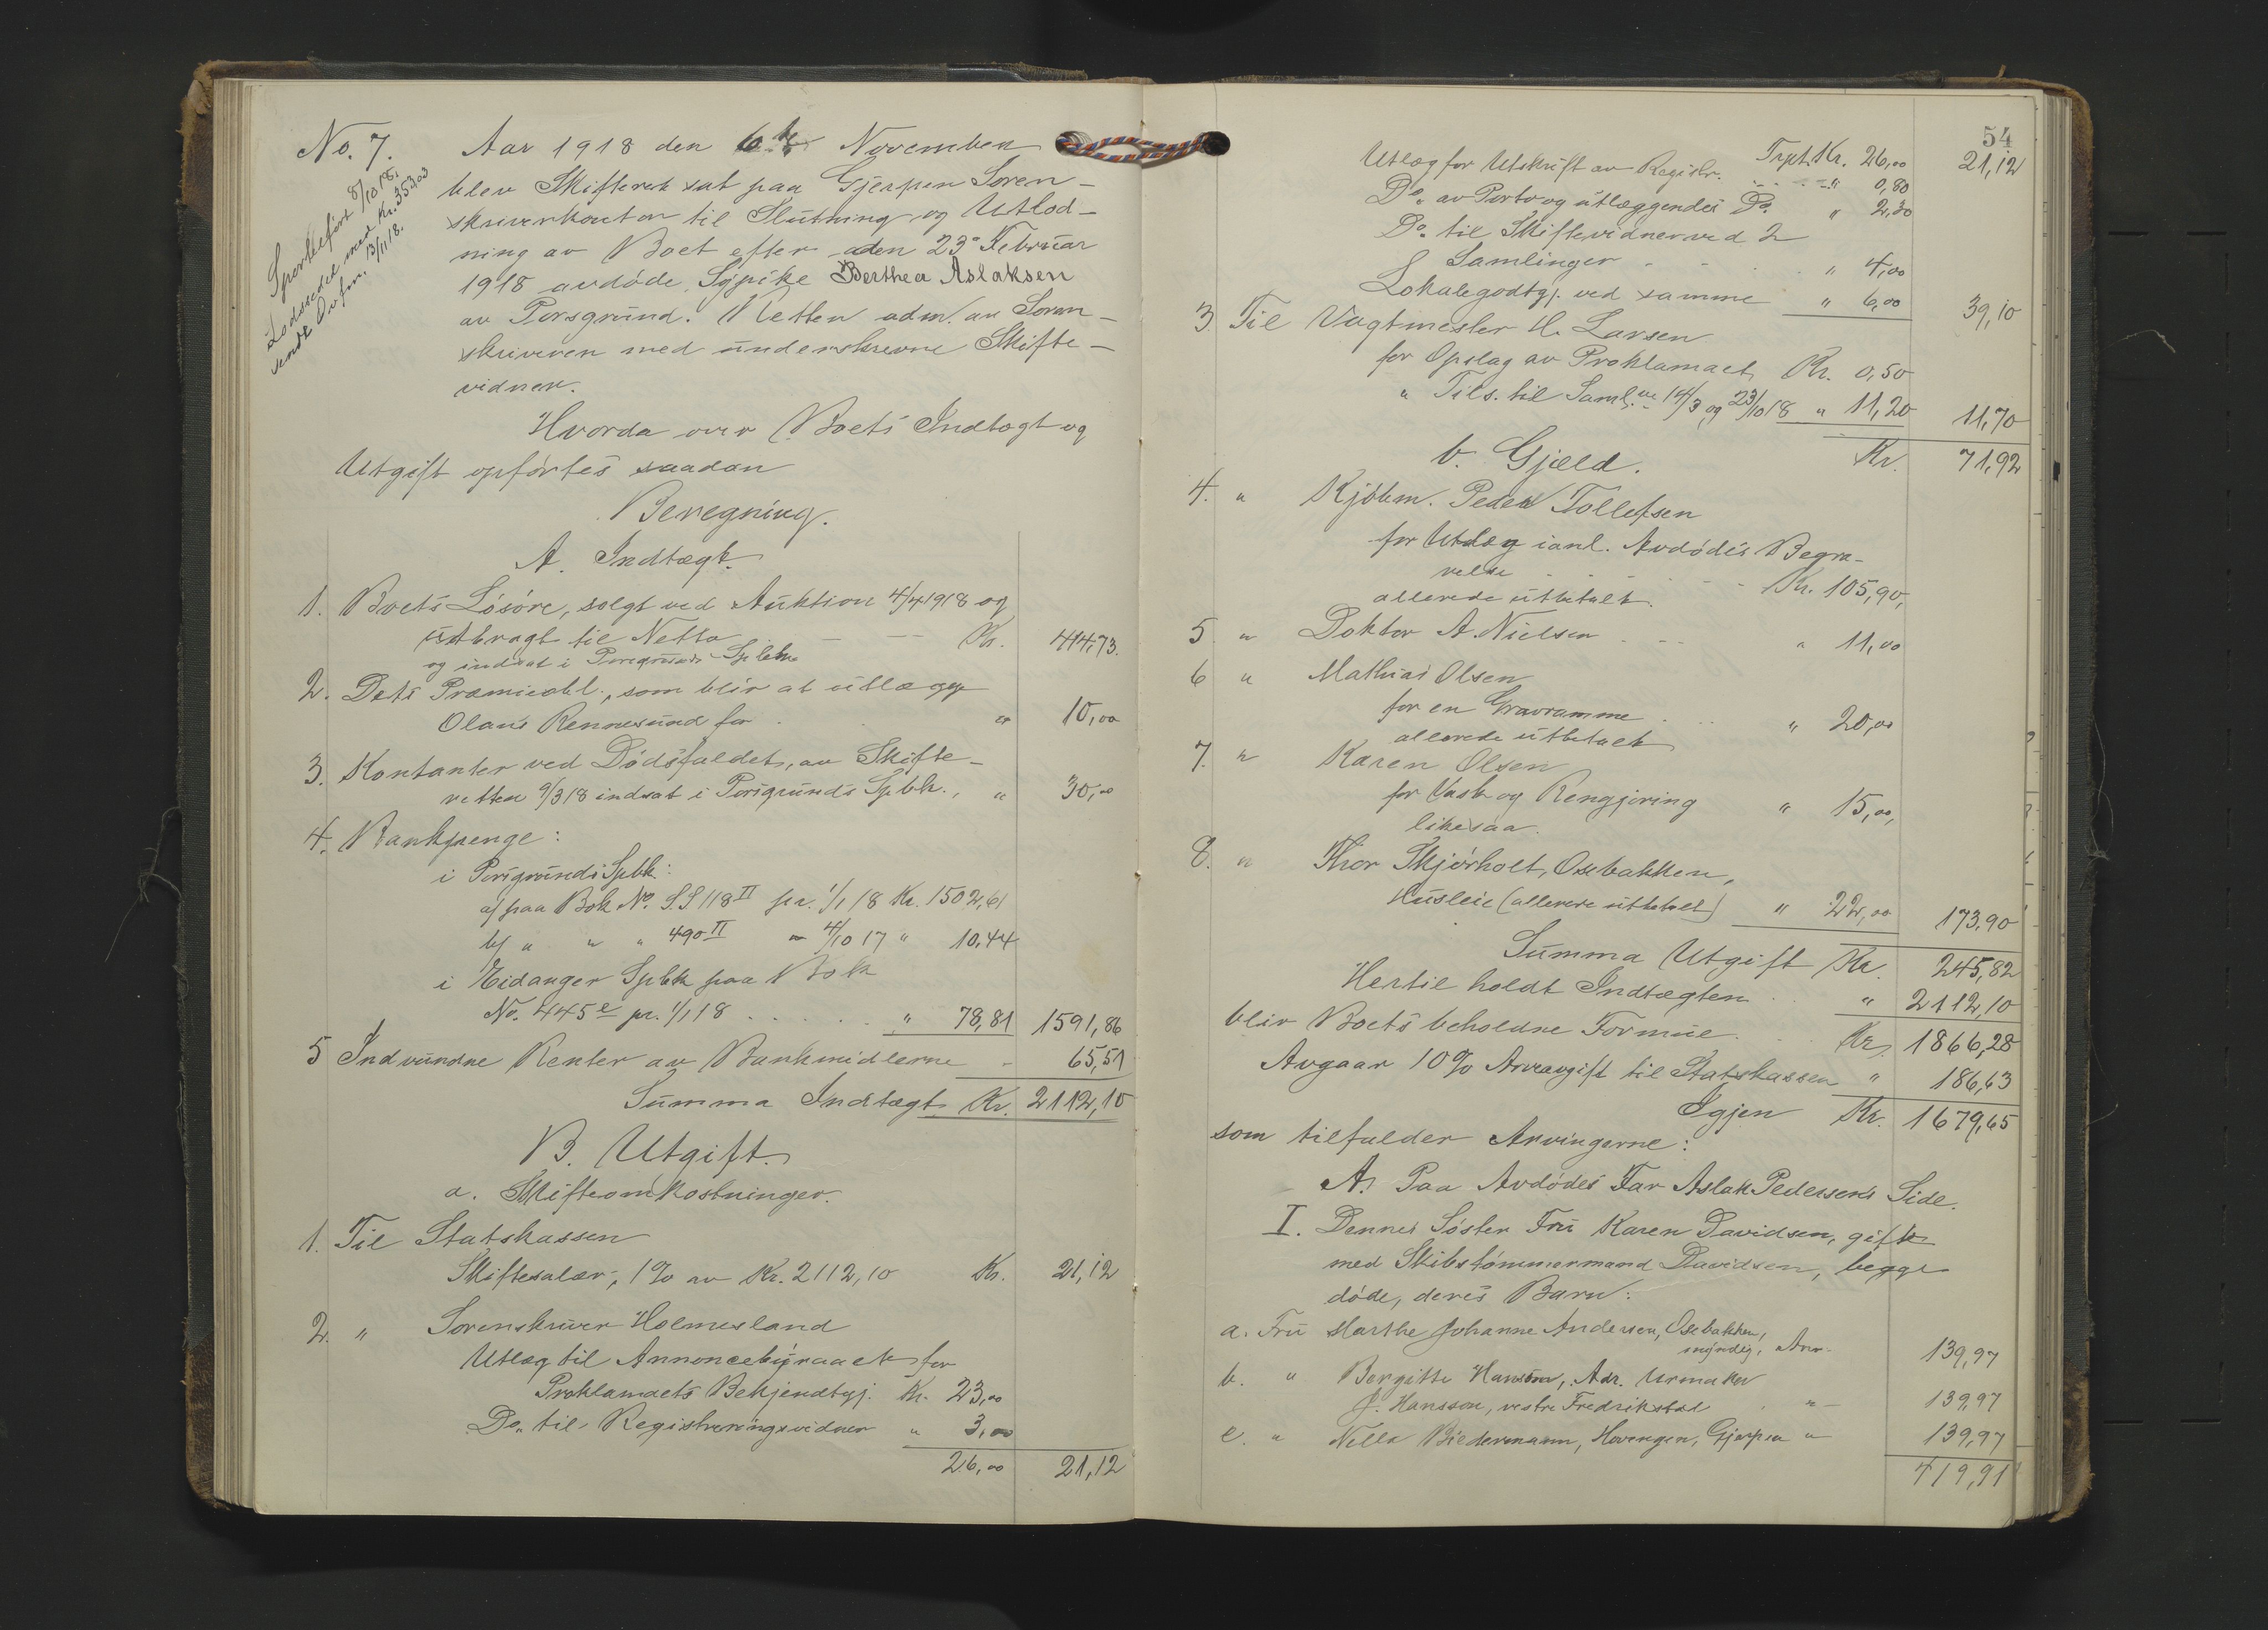 No. 7.
Sportelført 8/10 18.
Lodseddel med Kr. 353,00
sendt Ovfm. 13/11 18.
Aar 1918 den 6te November
blev Skifteret sat paa Gjerpen Soren-
skriverkontor til Slutning og Utlod-
ning av Boet efter den 23de Februar
1918 avdøde Sypike Berthea Aslaksen
av Porsgrund. Retten adm. av Soren-
skriveren med underskrevne Skifte-
vidner.
Hvorda over Boets Indtægt og
Utgift opførtes saadan
Beregning.
A. Indtægt.
1. Boets Løsøre, solgt ved Auktion 4/4 1918 og
utbragt til Netto Kr. 414,73.
og indsat i Porsgrunds Spbk.
2. Dets Præmieobl., som blir at utlægge
Olaus Rennesund for " 10,00
3. Kontanter ved Dødsfaldet, av Skifte-
retten 9/3 18 indsat i Porsgrunds Spbk., " 30,00
4. Bankpenge:
i Porsgrunds Spbk.:
a/ paa Bok No. S.S 118 II pr. 1/1 18 Kr. 1502,61
b/ " " " 490 II - 4/10 17 " 10,44
i Eidanger Spbk paa Bok
No. 445 e pr. 1/1 18 . . . . . " 78,81 1591,86
5 Indvundne Renter av Bankmidlerne - 65,51
Summa Indtægt Kr. 2112,10
B. Utgift.
a. Skifteomkostninger.
1. Til Statskassen
Skiftesalær, 1% av Kr. 2112,10 Kr. 21,12
2. " Sorenskriver Holmesland
Utlæg til Annoncebyraaet for
Proklamaets Bekjendtgj. Kr. 23,00
Do. til Registreringsvidner " 3,00
26,00 21,12
54
Trpt. Kr. 26,00 21,12
Utlæg for Utskrift av Registr. . . . - " 0,80
Do. av Porto og utlæggendes Do. " 2,30
Do. til Skiftevidner ved 2
Samlinger . . . " 4,00
Lokalegodtgj. ved samme " 6,00 39,10
3 Til Vagtmester H. Larsen
for Opslag av Proklamaet Kr. 0,50
" Tils. til Saml.ne 14/3 og 23/10 18 " 11,20 11,70
Kr. 71,92
b. Gjæld.
4. " Kjøbm. Peder Tollefsen
for Utlæg i anl. Avdødes Begra-
velse . . . . Kr. 105,90,
allerede utbetalt.
5 " Doktor A. Nielsen . . . " 11,00
6 " Mathias Olsen
for en Gravramme . . . " 20,00
allerede utbetalt
7. " Karen Olsen
for Vask og Rengjøring " 15,00,
likesaa.
8. " Thor Skjørholt, Osebakken,
Husleie (allerede utbetalt) " 22,00 173,90
Summa Utgift Kr. 245,82
Hertil holdt Indtægten . " 2112,10
blir Boets beholdne Formue . . Kr. 1866,28
Avgaar 10% Arveavgift til Statskassen " 186,63
Igjen Kr. 1679,65
som tilfalder Arvingerne:
A. Paa Avdødes Far Aslak Pedersens Side.
I. Dennes Søster Fru Karen Davidsen, gift
med Skibstømmermand Davidsen, begge
døde, deres Barn:
a. Fru Marthe Johanne Andersen, Osebakken,
myndig, Arv- 139,97
b. " Bergitte Hansson, Adr. Urmaker
J. Hansson, vestre Fredrikstad . "- 139,97
c. " Nilla Biedermann, Hovengen, Gjerpen " 139,97
419,91